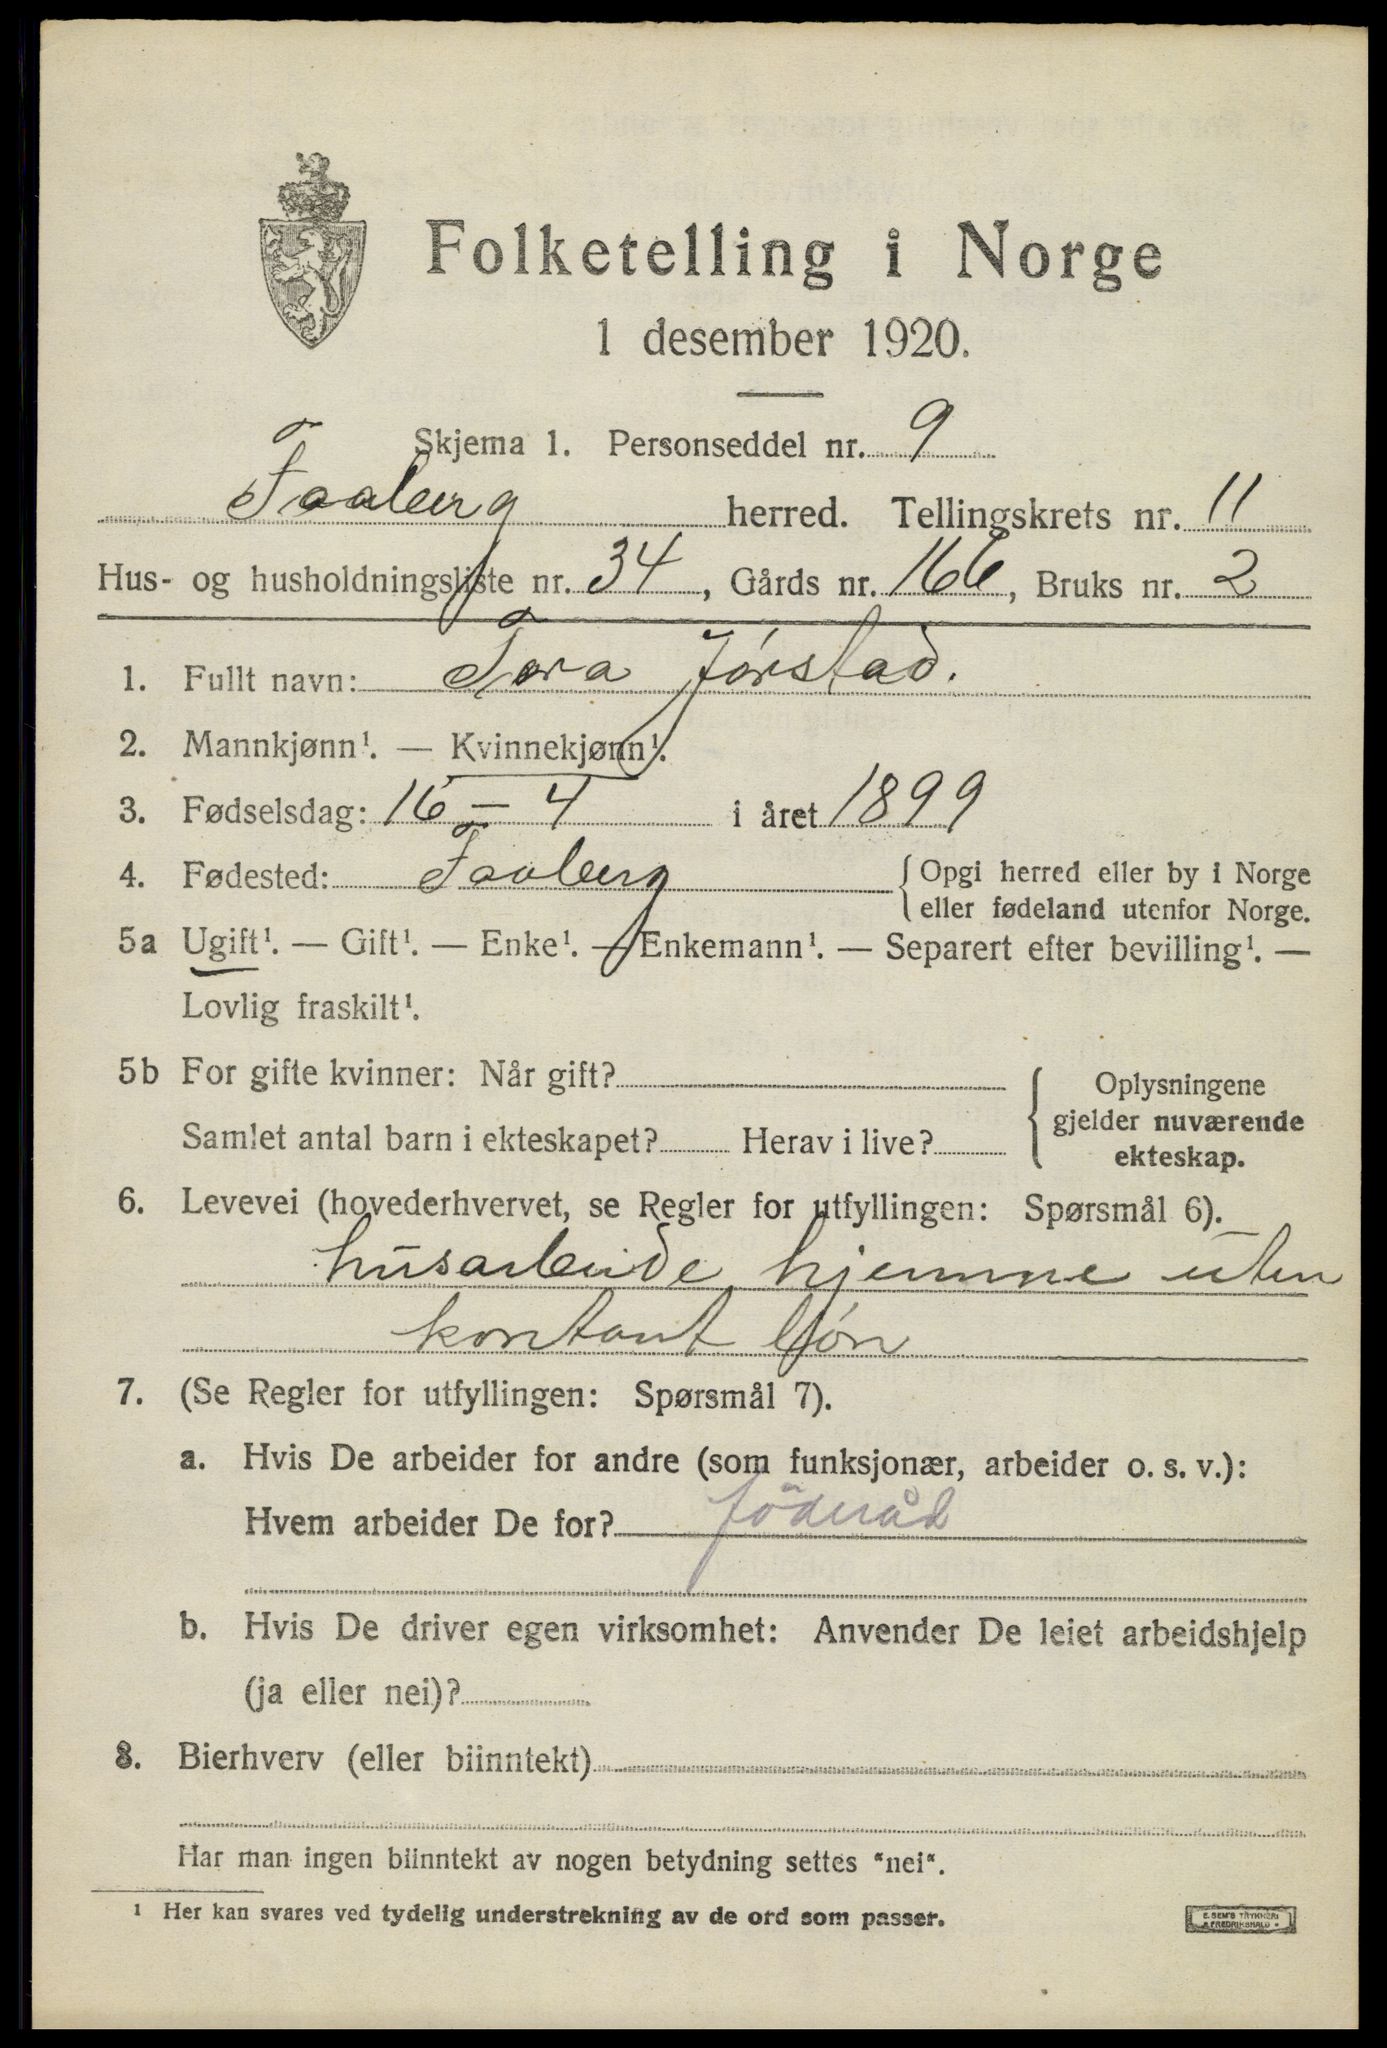 Folketelling i Norge
1 desember 1920.
Skjema 1. Personseddel nr. 9
Faaberg herred. Tellingskrets nr. 11
Hus- og husholdningsliste nr. 34, Gårds nr. 166, Bruks nr. 2
1. Fullt navn: Tora Jørstad.
2. Mannkjønn¹. — Kvinnekjønn¹.
3. Fødselsdag: 16 – 4 i året 1899
4. Fødested: Faaberg { Opgi herred eller by i Norge
eller fødeland utenfor Norge.
5a Ugift¹. — Gift¹. — Enke¹. — Enkemann¹. — Separert efter bevilling¹. —
Lovlig fraskilt¹.
5b For gifte kvinner: Når gift?
Samlet antal barn i ekteskapet? Herav i live?
{ Oplysningene
gjelder nuværende
ekteskap.
6. Levevei (hovederhvervet, se Regler for utfyllingen: Spørsmål 6).
husarbeide hjemme uten
kontant løn
7. (Se Regler for utfyllingen: Spørsmål 7).
a. Hvis De arbeider for andre (som funksjonær, arbeider o. s. v.):
Hvem arbeider De for? föderåd
b. Hvis De driver egen virksomhet: Anvender De leiet arbeidshjelp
(ja eller nei)?
8. Bierhverv (eller biinntekt)
Har man ingen biinntekt av nogen betydning settes "nei".
¹ Her kan svares ved tydelig understrekning av de ord som passer.
E. SEM'S TRYKKERI
FREDRIKSHALD